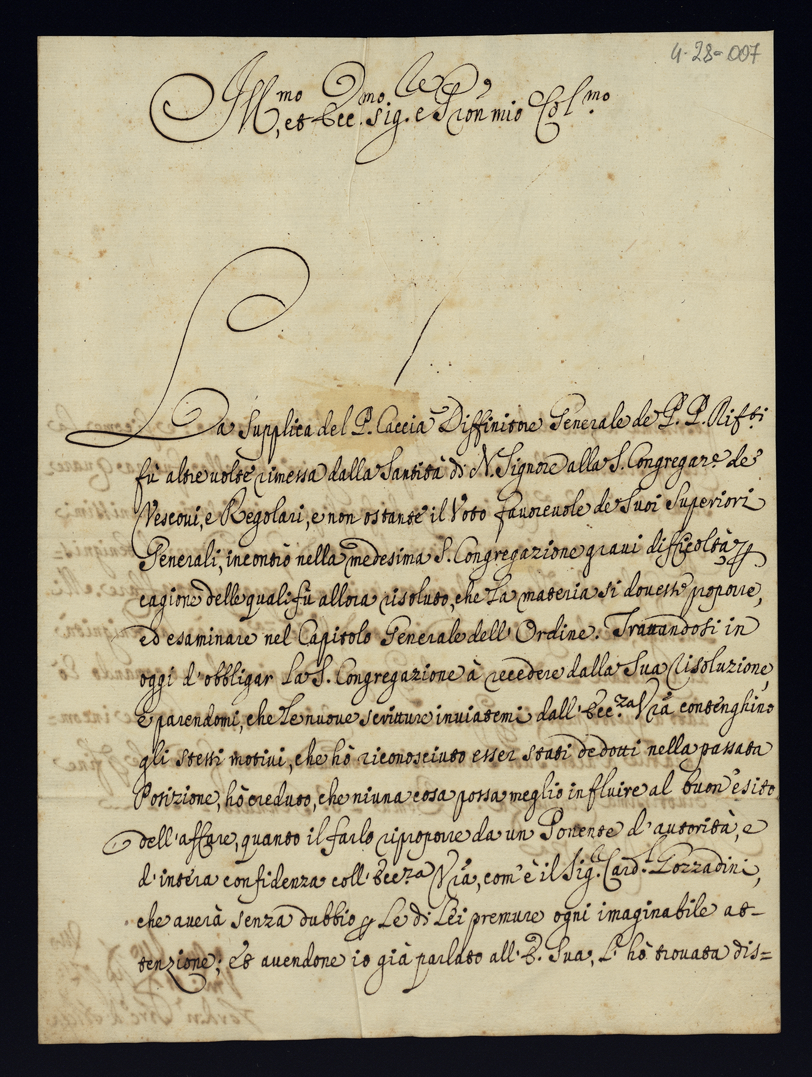 4-28-007
Ill.mo et Ecc.mo Sig.re e Pron mio Col.mo
La Supplica del P. Caccia Diffinitore Generale de P. P. Rif.ti
fù altre uolte rimessa dalla Santità di N. Signore alla S. Congregaz.e de
Vescoui, e Regolari, e non ostante il Voto fauoreuole de Suoi Superiori
Generali, incontrò nella medesima S. Congregazione graui difficoltà, p
cagione delle quali fù allora risoluto, che La materia si douesse proporre,
ed esaminare nel Capitolo Generale dell'Ordine. Trattandosi in
oggi d'obbligar La S. Congregazione à recedere dalla Sua risoluzione,
e parendomi, che Le nuoue scritture inuiatemi dall'Ecc.za Vrã contenghino
gli stessi motiui, che hò riconosciuto esser stati dedotti nella passata
Posizione, hò creduto, che niuna cosa possa meglio influire al buon esito
dell'affare, quanto il farlo riproporre da un Ponente d'autorità, e
d'intera confidenza coll'Ecc.za Vrã, com'è il Sig.r Card.l Gozzadini,
che auerà senza dubbio p Le di Lei premure ogni imaginabile at-
tenzione; et auendone io già parlato all'E. Sua, L'hò trouata dis=